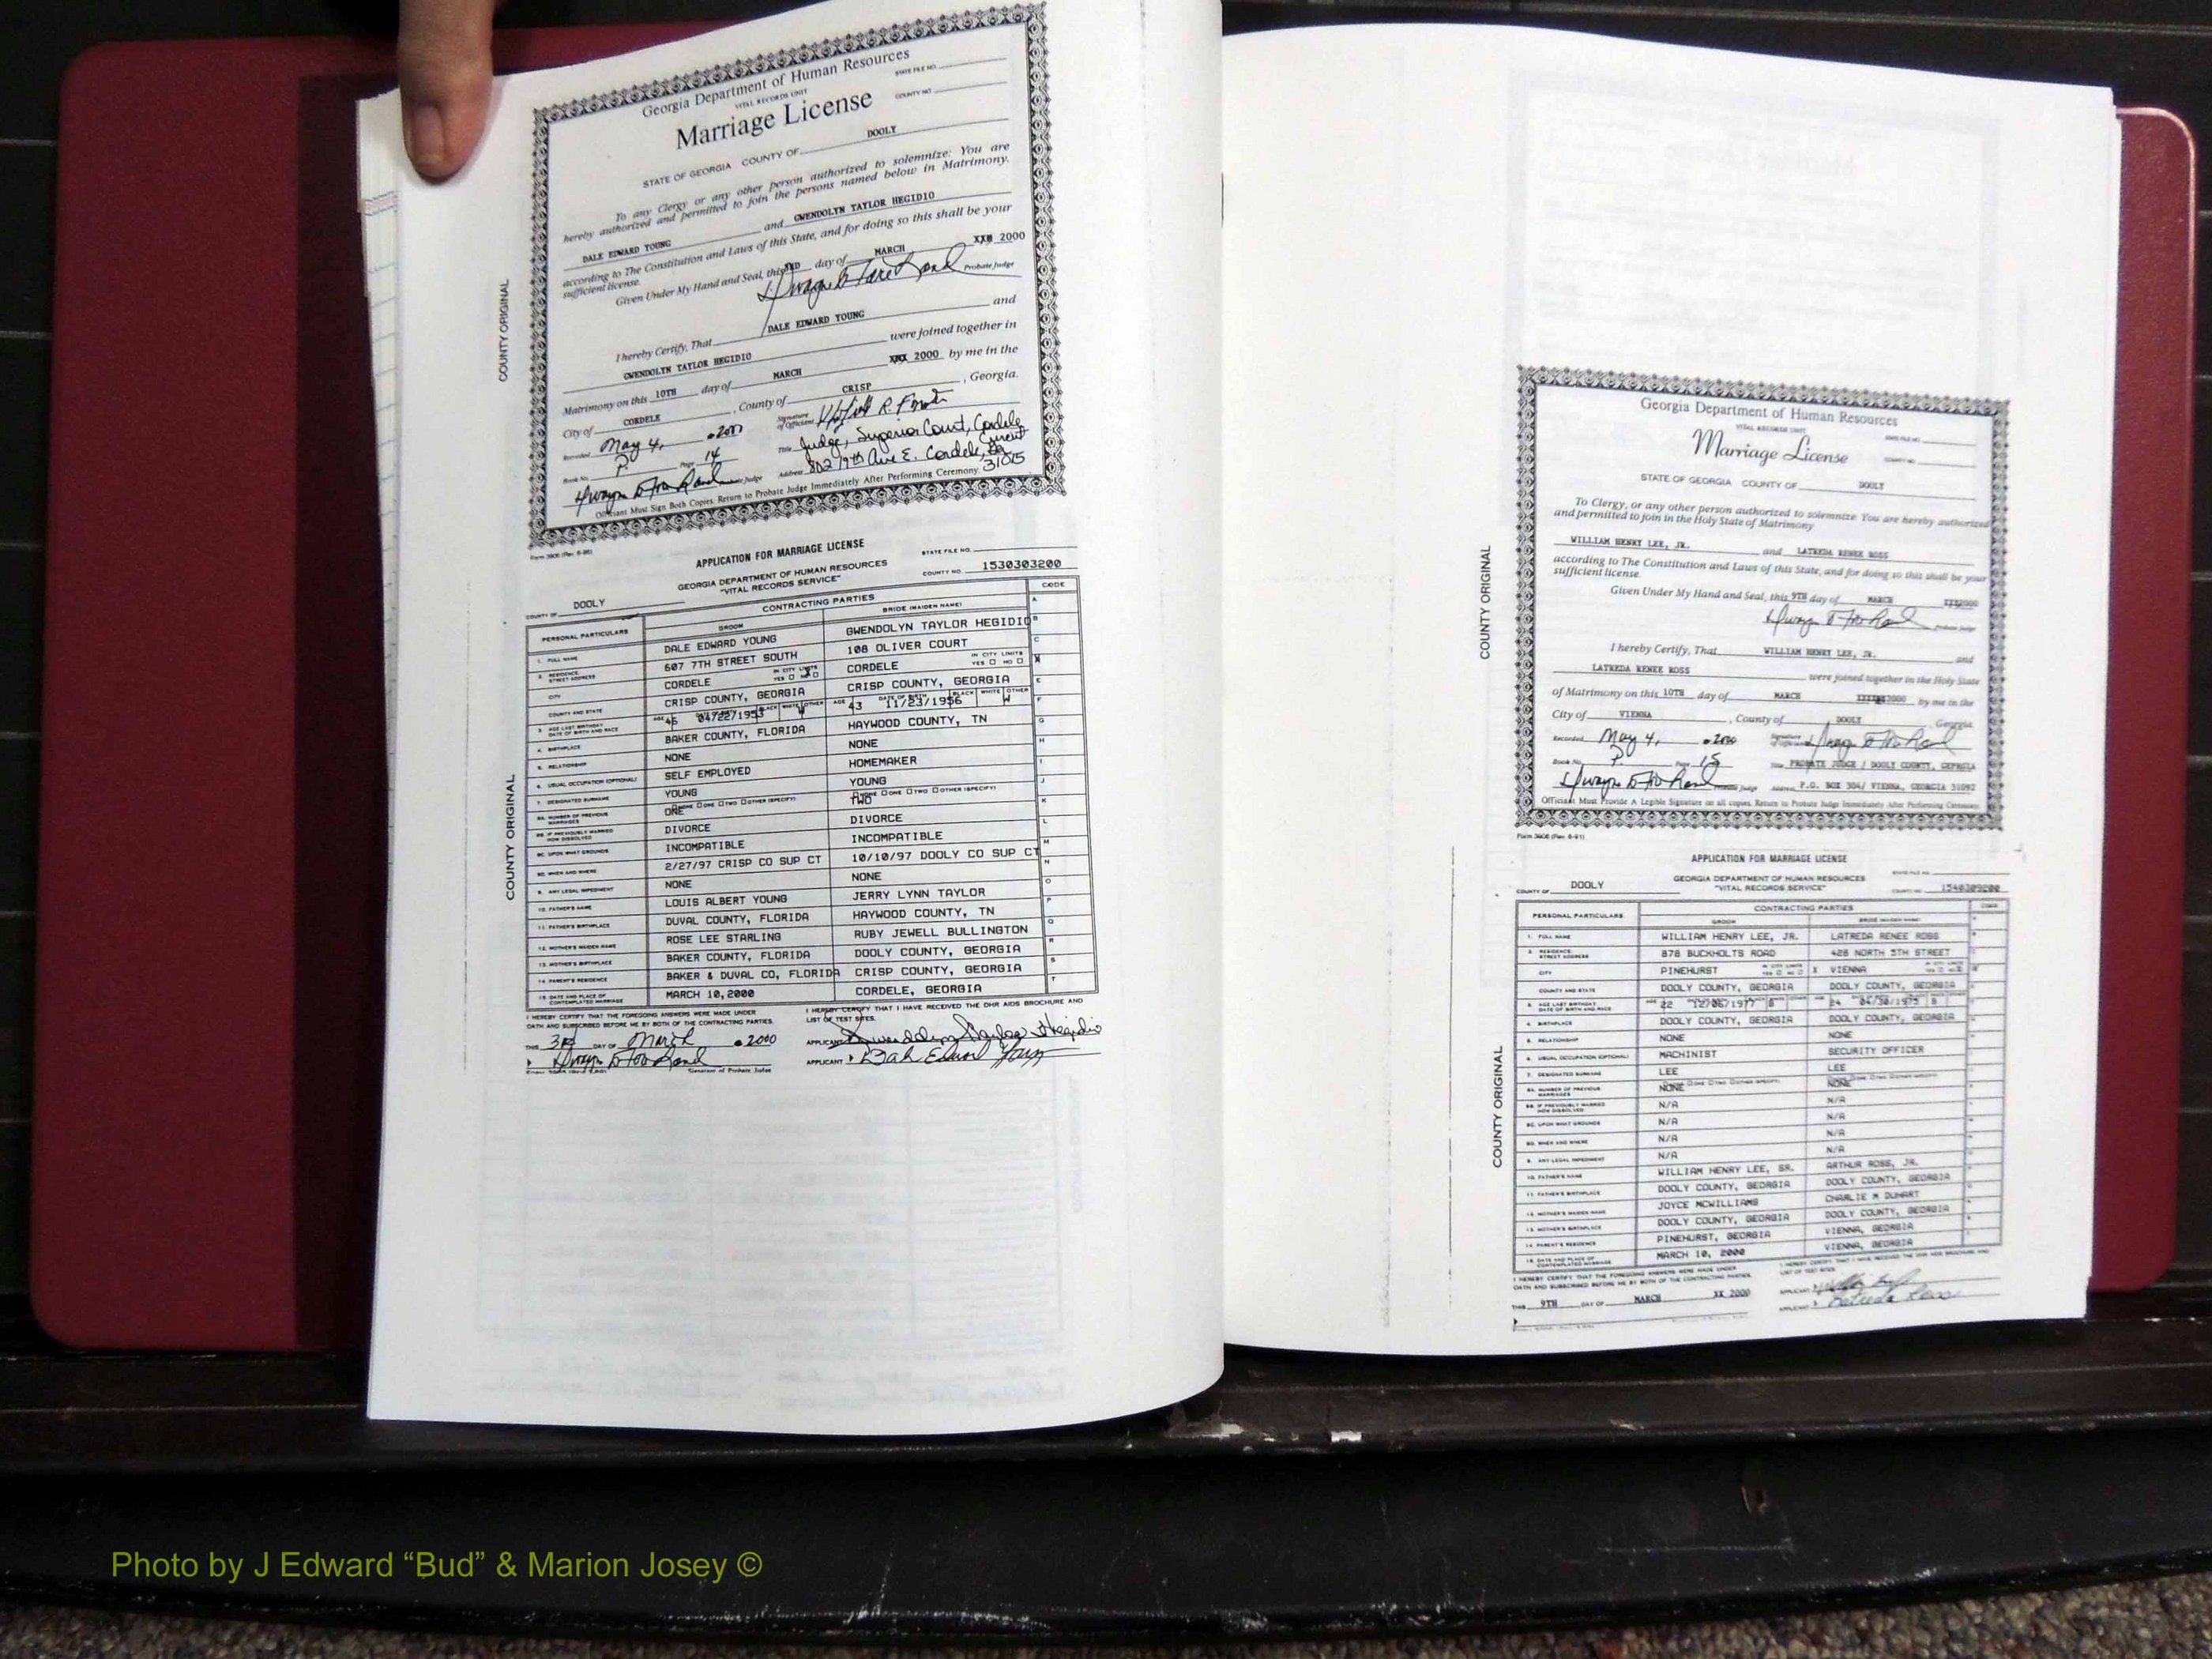 Georgia Department of Human Resources
VITAL RECORDS UNIT
STATE FILE NO.
Marriage License
COUNTY NO.
STATE OF GEORGIA COUNTY OF DOOLY
To any Clergy or any other person authorized to solemnize: You are
hereby authorized and permitted to join the persons named below in Matrimony.
DALE EDWARD YOUNG and GWENDOLYN TAYLOR HEGIDIO
according to The Constitution and Laws of this State, and for doing so this shall be your
sufficient license.
Given Under My Hand and Seal, this 3RD day of MARCH 2000
Probate Judge
I hereby Certify, That DALE EDWARD YOUNG and
GWENDOLYN TAYLOR HEGIDIO were joined together in
Matrimony on this 10TH day of MARCH XXX 2000 by me in the
City of CORDELE, County of CRISP, Georgia.
Recorded May 4, 2000 Signature of Officiant
Book No. P Page 14 Title Judge, Superior Court, Cordele Circuit
Probate Judge Address 802 19th Ave E. Cordele, Ga 31015
Officiant Must Sign Both Copies. Return to Probate Judge Immediately After Performing Ceremony.
COUNTY ORIGINAL
Form 3906 (Rev. 6-96)
APPLICATION FOR MARRIAGE LICENSE
STATE FILE NO.
GEORGIA DEPARTMENT OF HUMAN RESOURCES
"VITAL RECORDS SERVICE"
COUNTY NO. 1530303200
COUNTY OF DOOLY
CONTRACTING PARTIES CODE
PERSONAL PARTICULARS GROOM BRIDE (MAIDEN NAME)
1. FULL NAME DALE EDWARD YOUNG GWENDOLYN TAYLOR HEGIDIO
2. RESIDENCE STREET ADDRESS 607 7TH STREET SOUTH 108 OLIVER COURT
CITY CORDELE IN CITY LIMITS YES NO CORDELE IN CITY LIMITS YES NO
COUNTY AND STATE CRISP COUNTY, GEORGIA CRISP COUNTY, GEORGIA
3. AGE LAST BIRTHDAY DATE OF BIRTH AND RACE AGE 46 04/22/1953 W AGE 43 11/23/1956 W
4. BIRTHPLACE BAKER COUNTY, FLORIDA HAYWOOD COUNTY, TN
5. RELATIONSHIP NONE NONE
6. USUAL OCCUPATION (OPTIONAL) SELF EMPLOYED HOMEMAKER
7. DESIGNATED SURNAME YOUNG YOUNG
8A. NUMBER OF PREVIOUS MARRIAGES ONE TWO
8B. IF PREVIOUSLY MARRIED HOW DISSOLVED DIVORCE DIVORCE
8C. UPON WHAT GROUNDS INCOMPATIBLE INCOMPATIBLE
8D. WHEN AND WHERE 2/27/97 CRISP CO SUP CT 10/10/97 DOOLY CO SUP CT
9. ANY LEGAL IMPEDIMENT NONE NONE
10. FATHER'S NAME LOUIS ALBERT YOUNG JERRY LYNN TAYLOR
11. FATHER'S BIRTHPLACE DUVAL COUNTY, FLORIDA HAYWOOD COUNTY, TN
12. MOTHER'S MAIDEN NAME ROSE LEE STARLING RUBY JEWELL BULLINGTON
13. MOTHER'S BIRTHPLACE BAKER COUNTY, FLORIDA DOOLY COUNTY, GEORGIA
14. PARENT'S RESIDENCE BAKER & DUVAL CO, FLORIDA CRISP COUNTY, GEORGIA
15. DATE AND PLACE OF CONTEMPLATED MARRIAGE MARCH 10, 2000 CORDELE, GEORGIA
I HEREBY CERTIFY THAT THE FOREGOING ANSWERS WERE MADE UNDER
OATH AND SUBSCRIBED BEFORE ME BY BOTH OF THE CONTRACTING PARTIES.
I HEREBY CERTIFY THAT I HAVE RECEIVED THE DHR AIDS BROCHURE AND
LIST OF TEST SITES.
THIS 3rd DAY OF March 2000 APPLICANT Gwendolyn Taylor Hegidio
APPLICANT Dale Edward Young
Signature of Probate Judge
COUNTY ORIGINAL
Georgia Department of Human Resources
VITAL RECORDS UNIT
STATE FILE NO.
Marriage License
COUNTY NO.
STATE OF GEORGIA COUNTY OF DOOLY
To Clergy, or any other person authorized to solemnize You are hereby authorized
and permitted to join in the Holy State of Matrimony
WILLIAM HENRY LEE, JR. and LATREDA RENEE ROSS
according to The Constitution and Laws of this State, and for doing so this shall be your
sufficient license.
Given Under My Hand and Seal, this 9TH day of MARCH 2000
Probate Judge
I hereby Certify, That WILLIAM HENRY LEE, JR. and
LATREDA RENEE ROSS were joined together in the Holy State
of Matrimony on this 10TH day of MARCH 2000 by me in the
City of VIENNA, County of DOOLY, Georgia
Recorded May 4, 2000 Signature of Officiant
Book No. P Page 15 Title PROBATE JUDGE / DOOLY COUNTY, GEORGIA
Probate Judge Address P.O. BOX 304/ VIENNA, GEORGIA 31092
Officiant Must Provide A Legible Signature on all copies. Return to Probate Judge Immediately After Performing Ceremony.
COUNTY ORIGINAL
Form 3906 (Rev. 6-91)
APPLICATION FOR MARRIAGE LICENSE
GEORGIA DEPARTMENT OF HUMAN RESOURCES
"VITAL RECORDS SERVICE"
COUNTY OF DOOLY COUNTY NO. 1540309200
CONTRACTING PARTIES CODE
PERSONAL PARTICULARS GROOM BRIDE (MAIDEN NAME)
1. FULL NAME WILLIAM HENRY LEE, JR. LATREDA RENEE ROSS
2. RESIDENCE STREET ADDRESS 878 BUCKHOLTS ROAD 428 NORTH 5TH STREET
CITY PINEHURST X VIENNA
COUNTY AND STATE DOOLY COUNTY, GEORGIA DOOLY COUNTY, GEORGIA
3. AGE LAST BIRTHDAY DATE OF BIRTH AND RACE AGE 22 12/06/1977 B AGE 24 04/30/1975 B
4. BIRTHPLACE DOOLY COUNTY, GEORGIA DOOLY COUNTY, GEORGIA
5. RELATIONSHIP NONE NONE
6. USUAL OCCUPATION (OPTIONAL) MACHINIST SECURITY OFFICER
7. DESIGNATED SURNAME LEE LEE
8A. NUMBER OF PREVIOUS MARRIAGES NONE NONE
8B. IF PREVIOUSLY MARRIED HOW DISSOLVED N/A N/A
8C. UPON WHAT GROUNDS N/A N/A
8D. WHEN AND WHERE N/A N/A
9. ANY LEGAL IMPEDIMENT N/A N/A
10. FATHER'S NAME WILLIAM HENRY LEE, SR. ARTHUR ROSS, JR.
11. FATHER'S BIRTHPLACE DOOLY COUNTY, GEORGIA DOOLY COUNTY, GEORGIA
12. MOTHER'S MAIDEN NAME JOYCE MCWILLIAMS CHARLIE M DUHART
13. MOTHER'S BIRTHPLACE DOOLY COUNTY, GEORGIA DOOLY COUNTY, GEORGIA
14. PARENT'S RESIDENCE PINEHURST, GEORGIA VIENNA, GEORGIA
15. DATE AND PLACE OF CONTEMPLATED MARRIAGE MARCH 10, 2000 VIENNA, GEORGIA
I HEREBY CERTIFY THAT THE FOREGOING ANSWERS WERE MADE UNDER
OATH AND SUBSCRIBED BEFORE ME BY BOTH OF THE CONTRACTING PARTIES.
I HEREBY CERTIFY THAT I HAVE RECEIVED THE DHR AIDS BROCHURE AND
LIST OF TEST SITES.
THIS 9TH DAY OF MARCH XX 2000 APPLICANT
APPLICANT Latreda Ross
COUNTY ORIGINAL
Photo by J Edward “Bud” & Marion Josey ©